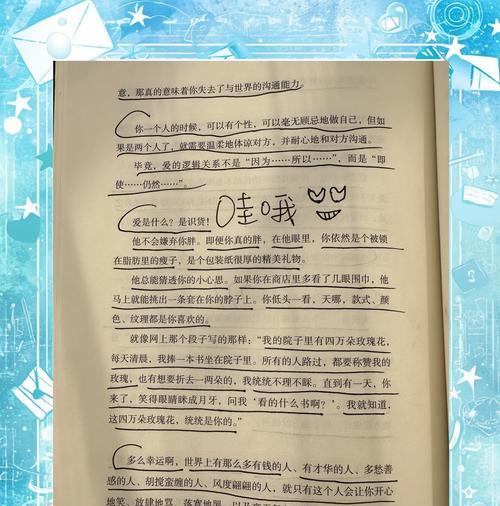 意，那真的意味着你失去了与世界的沟通能力。
你一个人的时候，可以有个性，可以毫无顾忌地做自己，但如
果是两个人了，就需要温柔地体谅对方，并耐心地和对方沟通。
毕竟，爱的逻辑关系不是“因为……所以……”，而是“即
使……仍然……”。
爱是什么？是识货！哇哦
他不会嫌弃你胖。即便你真的胖，在他眼里，你依然是个被锁
在脂肪里的瘦子，是个包装纸很厚的精美礼物。
他总能猜透你的小心思。如果你在商店里多看了几眼围巾，他
马上就能挑出一条套在你的脖子上。你低头一看，天哪，款式、颜
色、纹理都是你喜欢的。
就像网上那个段子写的那样：“我的院子里有四万朵玫瑰花，
每天清晨，我捧一本书坐在院子里。所有的人路过，都要称赞我的
玫瑰，也有想要折去一两朵的，我统统不理不睬。直到有一天，你
来了，笑得眼睛眯成月牙，问我‘看的什么书啊？’。我就知道，
这四万朵玫瑰花，统统是你的。”
多么幸运啊，世界上有那么多有钱的人、有才华的人、多愁善
感的人、胡搅蛮缠的人、风度翩翩的人，就只有这个人会让你开心
地笑、放肆地骂、落寞地哭